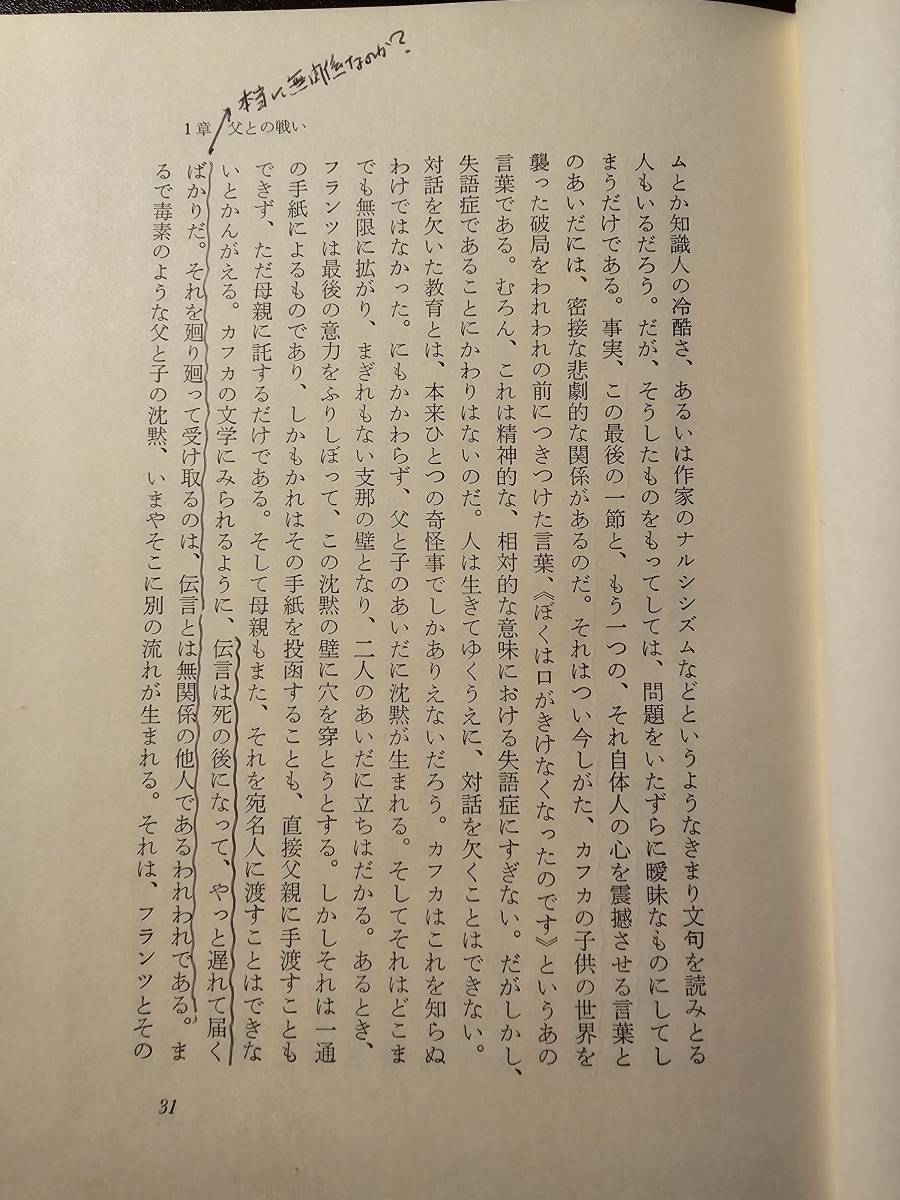 本当に無関係なのか?
1章 父との戦い
ムとか知識人の冷酷さ、あるいは作家のナルシシズムなどというようなきまり文句を読みとる
人もいるだろう。だが、そうしたものをもってしては、問題をいたずらに曖昧なものにしてし
まうだけである。事実、この最後の一節と、もう一つの、それ自体人の心を震撼させる言葉と
のあいだには、密接な悲劇的な関係があるのだ。それはつい今しがた、カフカの子供の世界を
襲った破局をわれわれの前につきつけた言葉、《ぼくは口がきけなくなったのです》というあの
言葉である。むろん、これは精神的な、相対的な意味における失語症にすぎない。だがしかし、
失語症であることにかわりはないのだ。人は生きてゆくうえに、対話を欠くことはできない。
対話を欠いた教育とは、本来ひとつの奇怪事でしかありえないだろう。カフカはこれを知らぬ
わけではなかった。にもかかわらず、父と子のあいだに沈黙が生まれる。そしてそれはどこま
でも無限に拡がり、まぎれもない支那の壁となり、二人のあいだに立ちはだかる。あるとき、
フランツは最後の意力をふりしぼって、この沈黙の壁に穴を穿とうとする。しかしそれは一通
の手紙によるものであり、しかもかれはその手紙を投函することも、直接父親に手渡すことも
できず、ただ母親に託するだけである。そして母親もまた、それを宛名人に渡すことはできな
いとかんがえる。カフカの文学にみられるように、伝言は死の後になって、やっと遅れて届く
ばかりだ。それを廻り廻って受け取るのは、伝言とは無関係の他人であるわれわれである。ま
るで毒素のような父と子の沈黙、いまやそこに別の流れが生まれる。それは、フランツとその
31